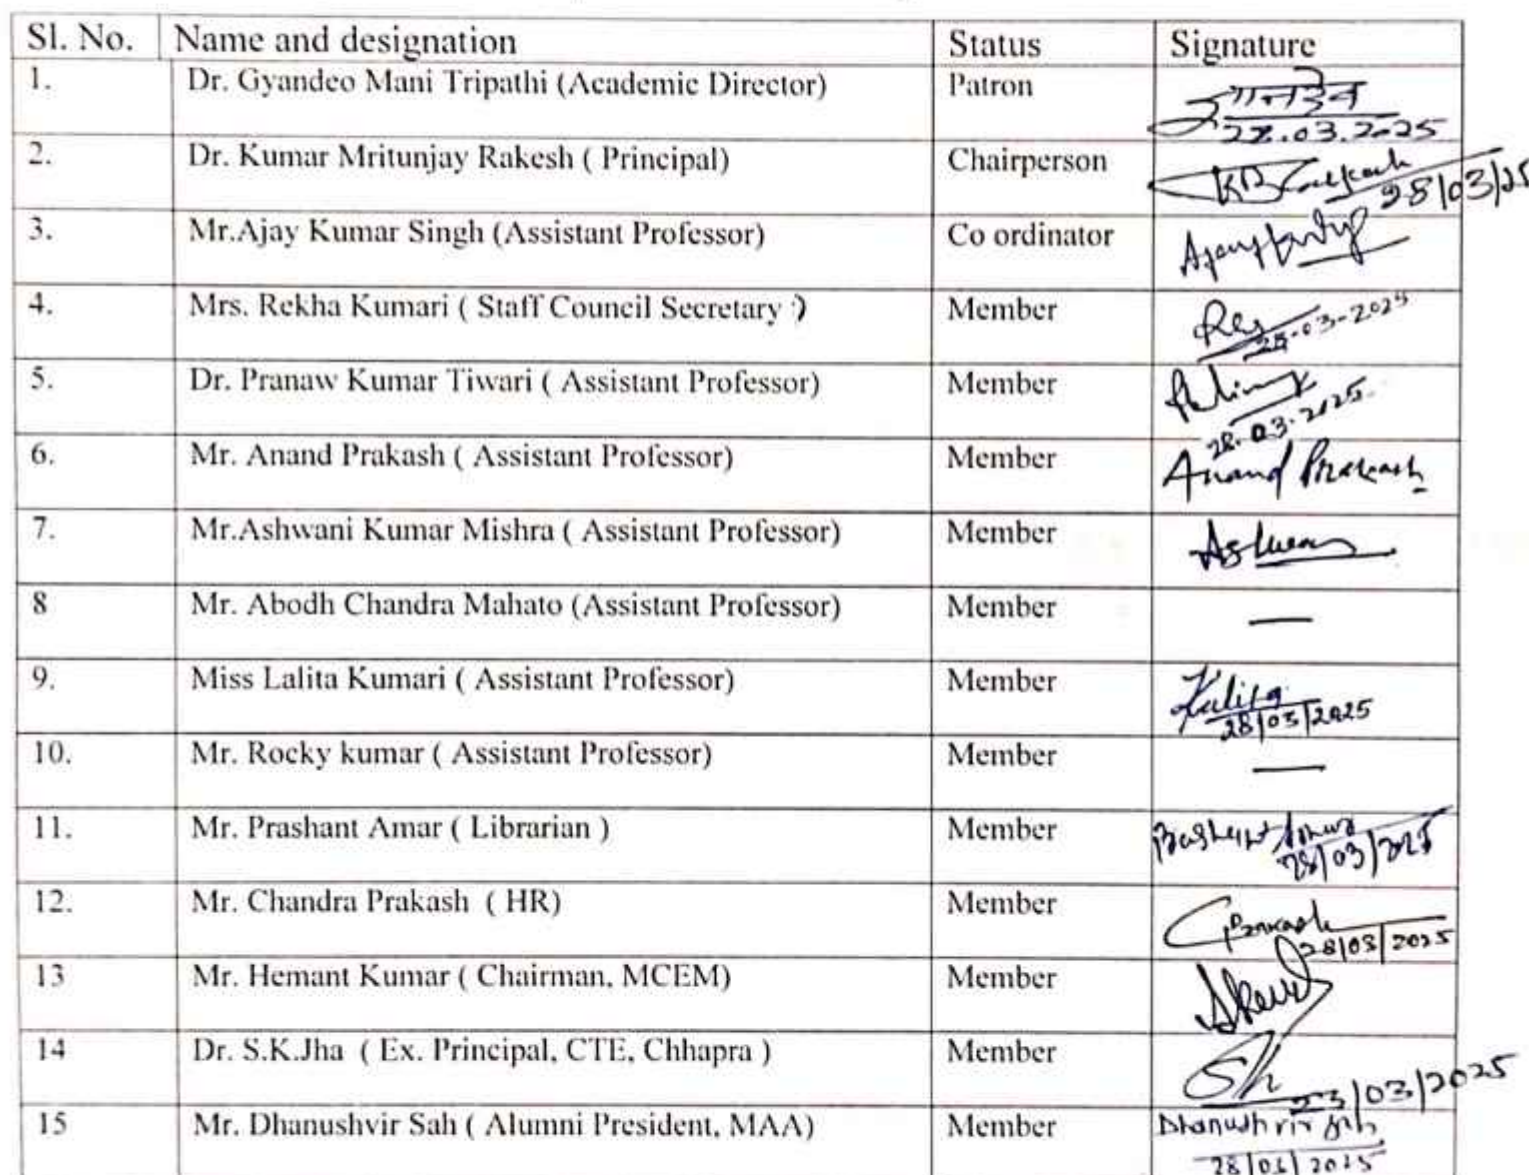 Sl. No. Name and designation Status Signature
1. Dr. Gyandeo Mani Tripathi (Academic Director) Patron ज्ञानदेव
28.03.2025
2. Dr. Kumar Mritunjay Rakesh ( Principal) Chairperson
28/03/25
3. Mr.Ajay Kumar Singh (Assistant Professor) Co ordinator
4. Mrs. Rekha Kumari ( Staff Council Secretary ) Member
28-03-2025
5. Dr. Pranaw Kumar Tiwari ( Assistant Professor) Member
28.03.2025
6. Mr. Anand Prakash ( Assistant Professor) Member Anand Prakash
7. Mr.Ashwani Kumar Mishra ( Assistant Professor) Member
8 Mr. Abodh Chandra Mahato (Assistant Professor) Member —
9. Miss Lalita Kumari ( Assistant Professor) Member Lalita
28/03/2025
10. Mr. Rocky kumar ( Assistant Professor) Member —
11. Mr. Prashant Amar ( Librarian ) Member Prashant Amar
28/03/2025
12. Mr. Chandra Prakash ( HR) Member CPrakash
28/03/2025
13 Mr. Hemant Kumar ( Chairman, MCEM) Member
14 Dr. S.K.Jha ( Ex. Principal, CTE, Chhapra ) Member
/03/2025
15 Mr. Dhanushvir Sah ( Alumni President, MAA) Member Dhanushvir Sah
28/03/2025